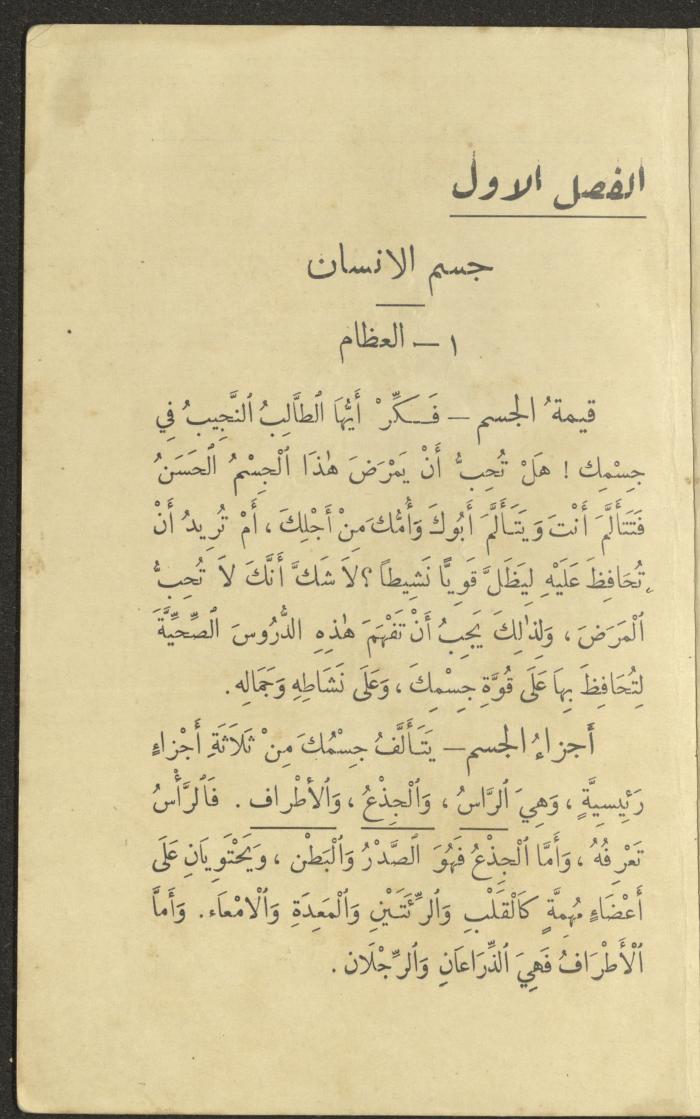 الفصل الاول
جسم الانسان
١ — العظام
قيمةُ الجسم — فَكِّرْ أَيُّهَا ٱلطَّالِبُ ٱلنَّجِيبُ فِي
جِسْمِكَ ! هَلْ تُحِبُّ أَنْ يَمْرَضَ هٰذَا ٱلْجِسْمُ ٱلْحَسَنُ
فَتَتَأَلَّمَ أَنْتَ وَيَتَأَلَّمَ أَبُوكَ وَأُمُّكَ مِنْ أَجْلِكَ ، أَمْ تُرِيدُ أَنْ
تُحَافِظَ عَلَيْهِ لِيَظَلَّ قَوِيًّا نَشِيطاً ؟ لاَ شَكَّ أَنَّكَ لاَ تُحِبُّ
ٱلْمَرَضَ ، وَلِذٰلِكَ يَجِبُ أَنْ تَفْهَمَ هٰذِهِ ٱلدُّرُوسَ ٱلصِّحِّيَّةَ
لِتُحَافِظَ بِهَا عَلَى قُوَّةِ جِسْمِكَ ، وَعَلَى نَشَاطِهِ وَجَمَالِهِ .
أَجزاءُ الجسم — يَتَأَلَّفُ جِسْمُكَ مِنْ ثَلَاثَةِ أَجْزاءٍ
رَئِيسِيَّةٍ ، وَهِيَ ٱلرَّاسُ ، وَٱلْجِذْعُ ، وَٱلأَطْراف . فَٱلرَّأْسُ
تَعْرِفُهُ ، وَأَمَّا ٱلْجِذْعُ فَهُوَ ٱلصَّدْرُ وَٱلْبَطْن ، وَيَحْتَوِيَانِ عَلَى
أَعْضَاءٍ مُهِمَّةٍ كَٱلْقَلْبِ وَٱلرِّئَتَيْنِ وَٱلْمَعِدَةِ وَٱلْامْعَاء . وَأَمَّا
ٱلْأَطْرَافُ فَهِيَ ٱلذِّرَاعَانِ وَٱلرِّجْلَان .